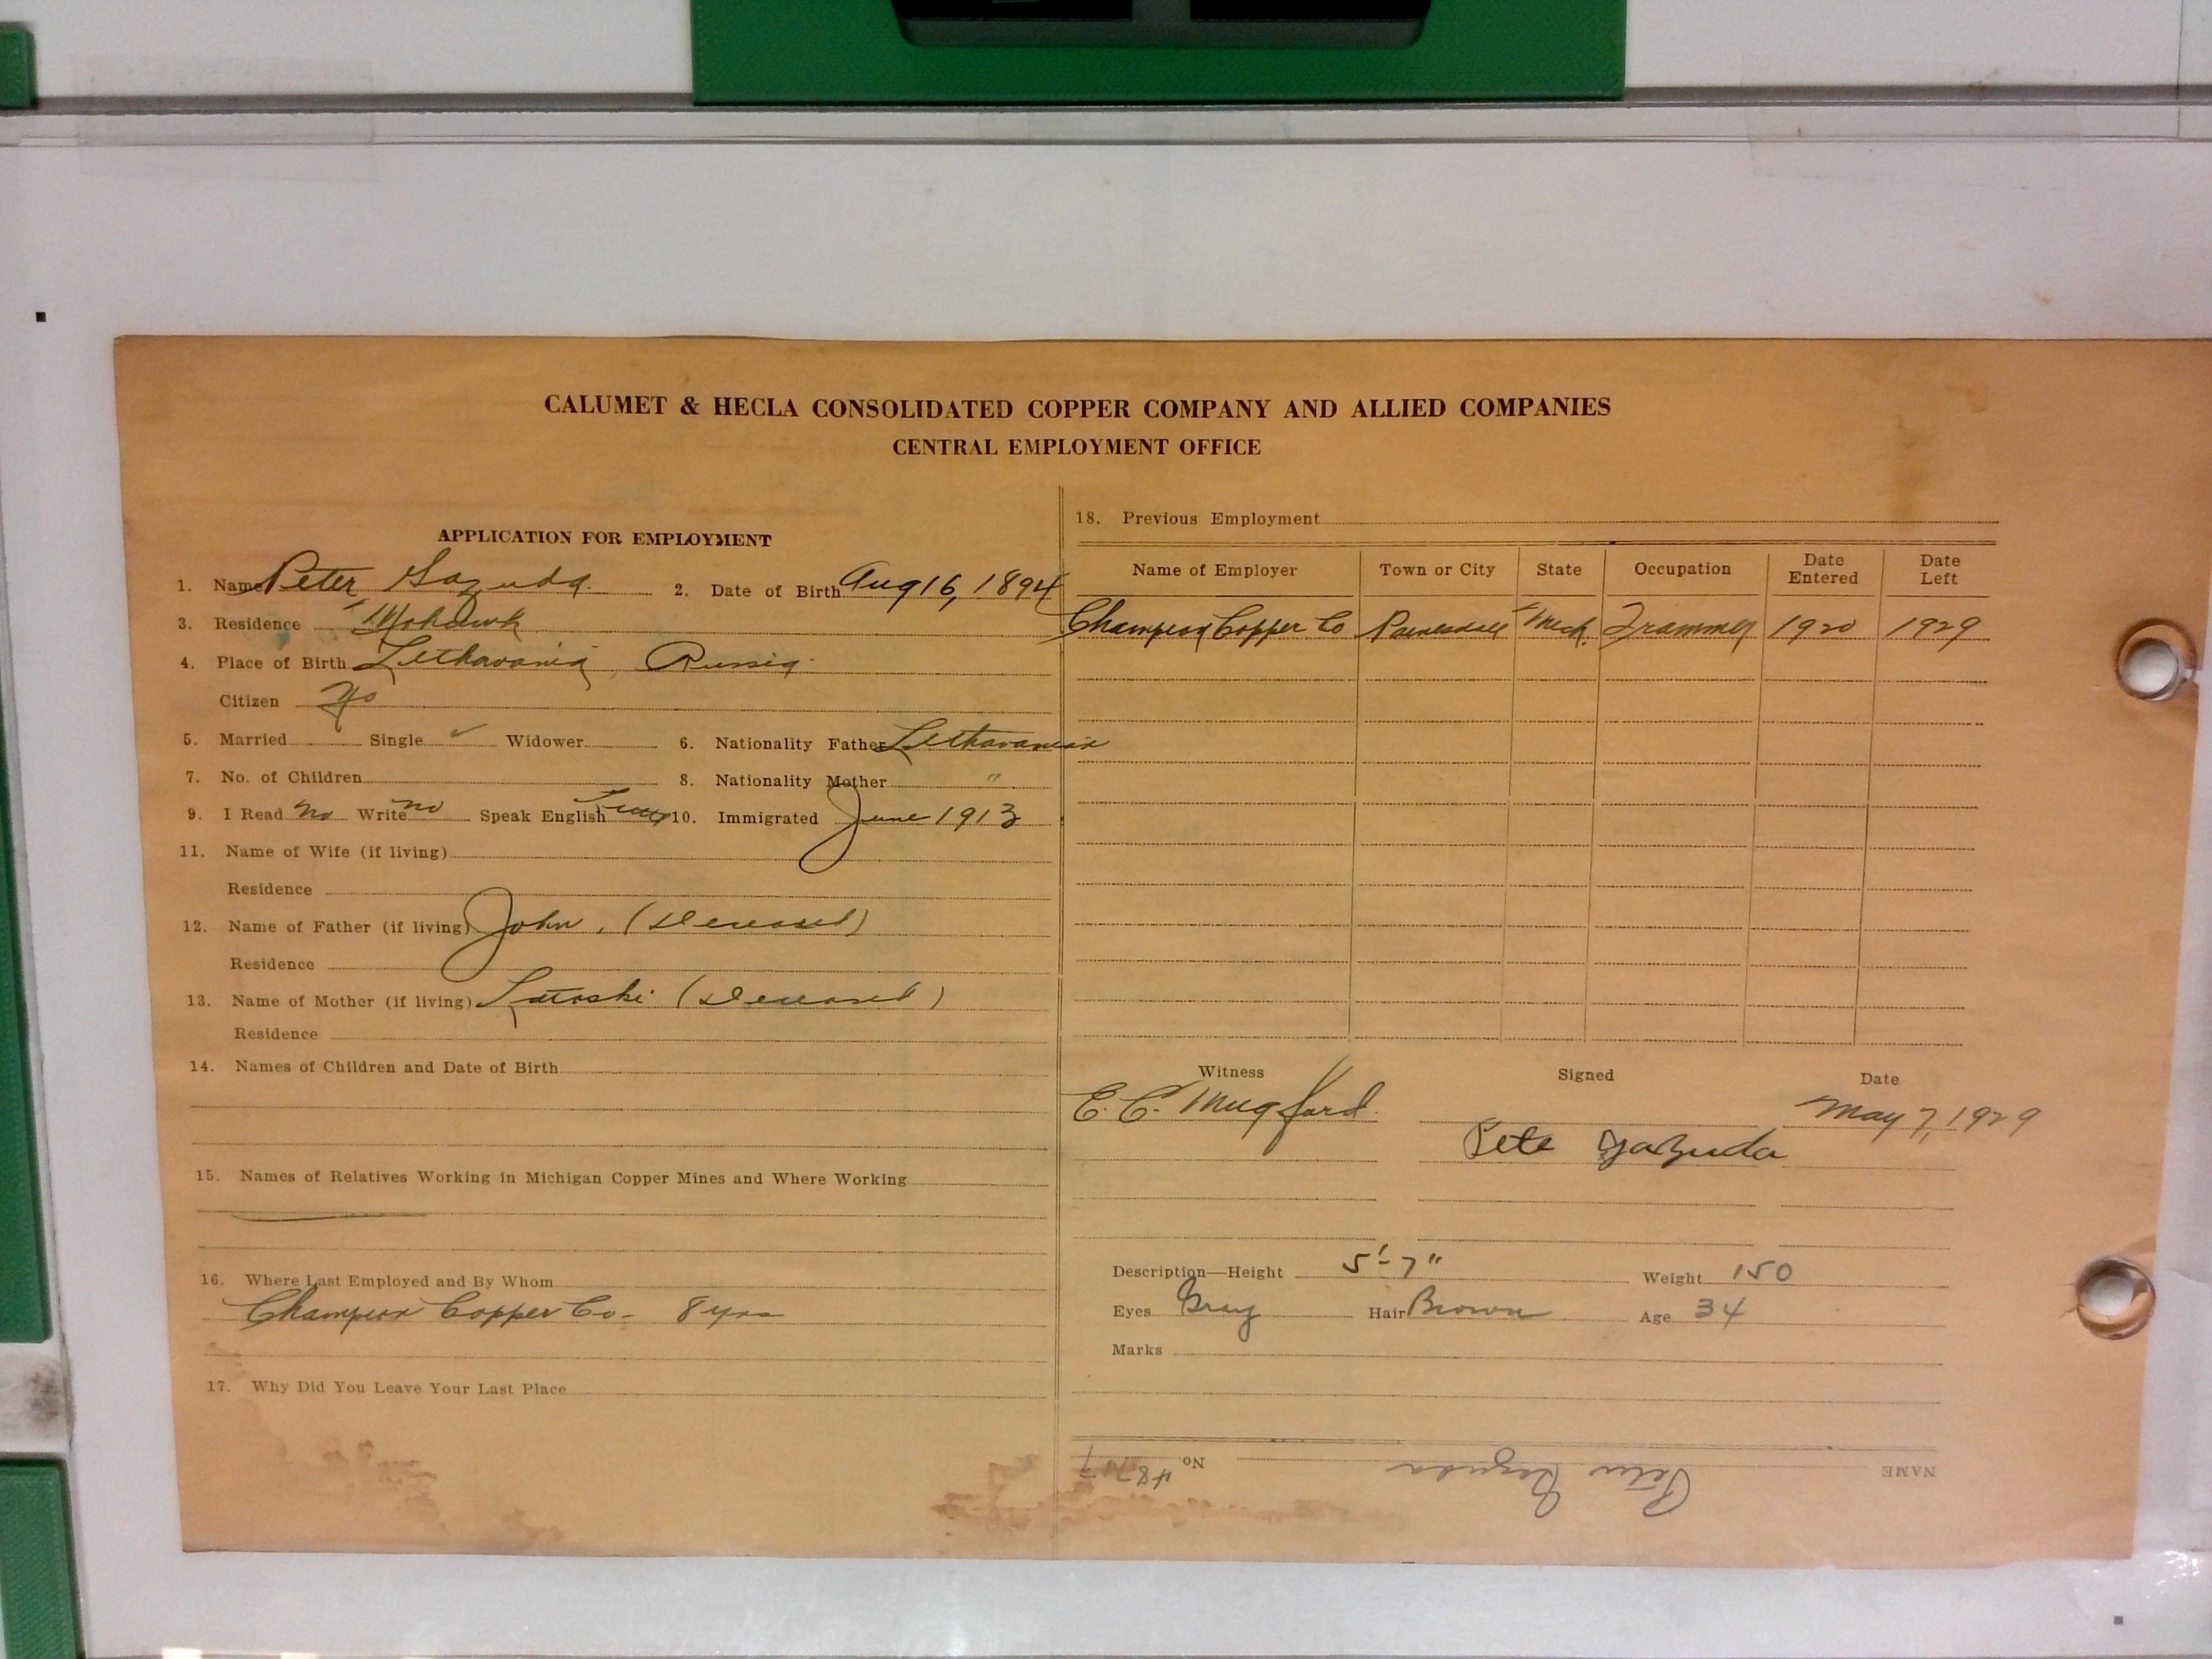 CALUMET & HECLA CONSOLIDATED COPPER COMPANY AND ALLIED COMPANIES
CENTRAL EMPLOYMENT OFFICE
APPLICATION FOR EMPLOYMENT
1. Name Peter Gazuda. 2. Date of Birth Aug 16, 1894
3. Residence Mohawk
4. Place of Birth Lethavania, Russia.
Citizen No
5. Married Single ✓ Widower 6. Nationality Father Lethavanian
7. No. of Children 8. Nationality Mother "
9. I Read No Write No Speak English 10. Immigrated June 1913
11. Name of Wife (if living)
Residence
12. Name of Father (if living) John, (Deceased)
Residence
13. Name of Mother (if living) (Deceased)
Residence
14. Names of Children and Date of Birth
15. Names of Relatives Working in Michigan Copper Mines and Where Working
16. Where Last Employed and By Whom
Champion Copper Co- 8 yrs
17. Why Did You Leave Your Last Place
18. Previous Employment
Name of Employer Town or City State Occupation Date Entered Date Left
Champion Copper Co Painesdale Mich. Trammer 1920 1929
Witness Signed Date
E. C. Mugford. May 7, 1929
Pete Gazuda
Description—Height 5'-7" Weight 150
Eyes Gray Hair Brown Age 34
Marks
NAME Peter Gazuda No.